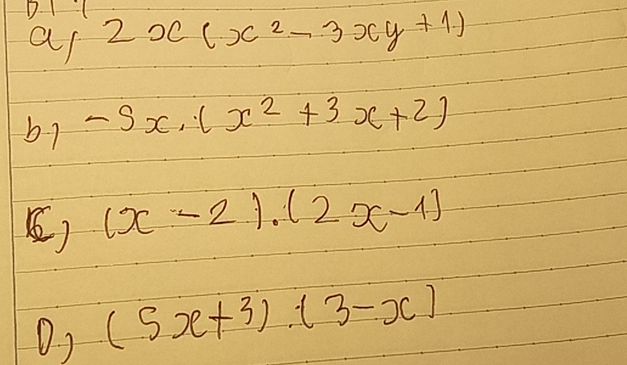 a, 2x(x² - 3xy + 1)
b, -5x.(x² + 3x + 2)
c, (x - 2).(2x - 1)
D, (5x + 3).(3 - x)